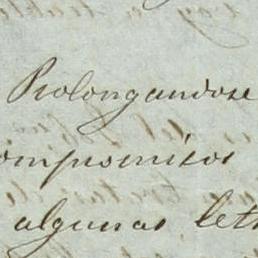 Prolongandose
ompromisos
algunas let